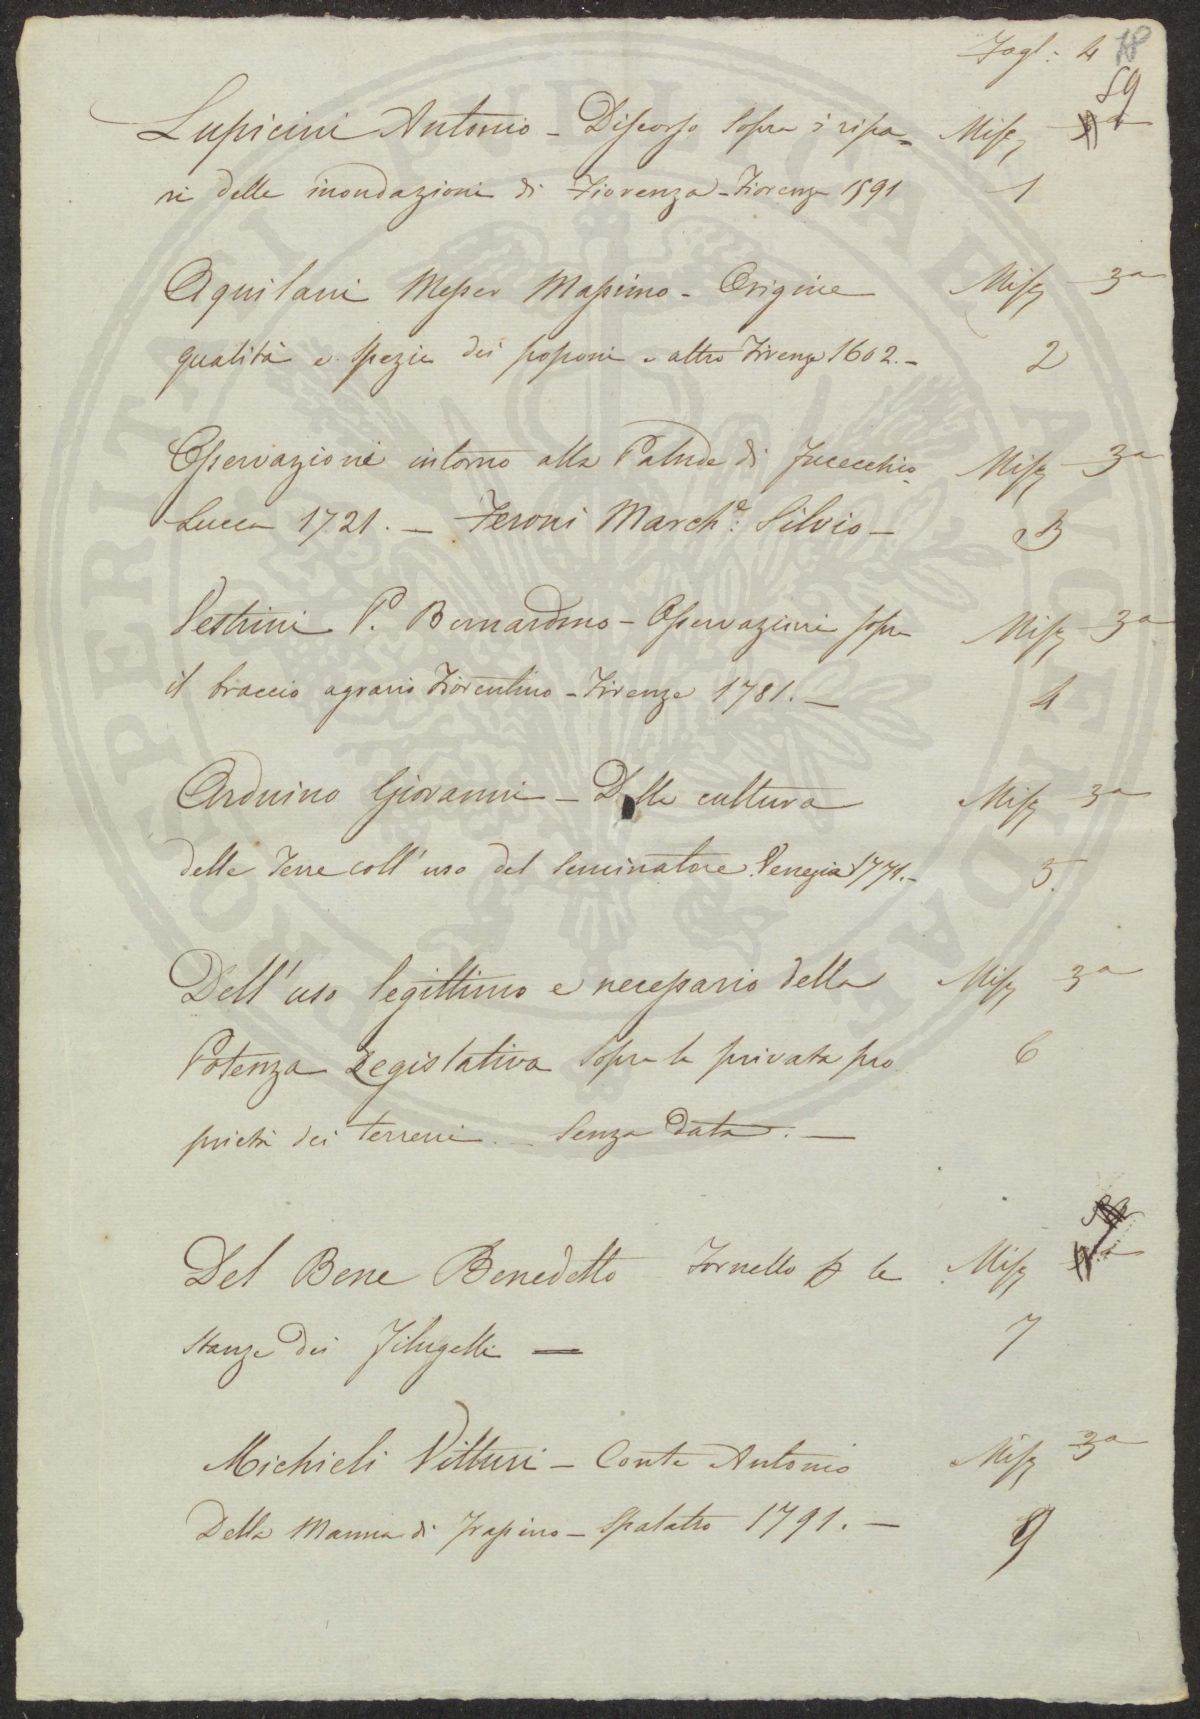 Fogl: 4 18
59
Lupicini Antonio - Discorso sopra i ripa= Misc
ri delle inondazioni di Fiorenza - Fiorenza 1591 1
Aquilani Messer Massimo - Origine Misc 3a
qualità e spezie dei poponi e altro Firenze 1602.- 2
Osservazioni intorno alla Palude di Fucecchio Misc 3a
Lucca 1721. - Feroni Marche: Silvio - 3
Vestrini P. Bernardino - Osservazioni sopra Misc 3a
il braccio agrario Fiorentino - Firenze 1781. - 4
Arduino Giovanni - Della cultura Misc 3a
delle Terre coll'uso del Seminatore. Venezia 1771.- 5.
Dell'uso legittimo e necessario della Misc 3a
Potenza Legislativa sopra la privata pro 6
prietà dei terreni. - Senza data. -
Del Bene Benedetto Fornello p le Misc
stanze dei Filugelli - 7
Michieli Vitturi - Conte Antonio Misc 3a
Della Manna di Frassino - Spalatro 1791. - 9
PROSPERITATI PUBLICAE AUGENDAE